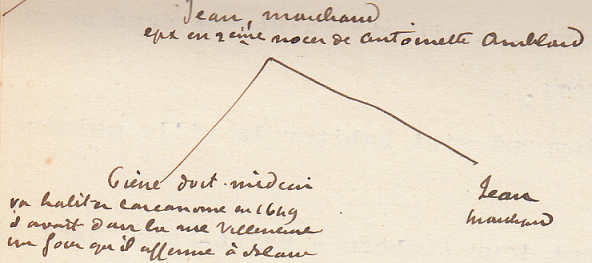 Jean, marchand
epx en 2ème noces de Antoinette Amblard
Pierre doct. médecin
va habiter Carcanome en 1649
il avait dans la rue Villeneuve
un four qu'il afferme à
Jean
marchand